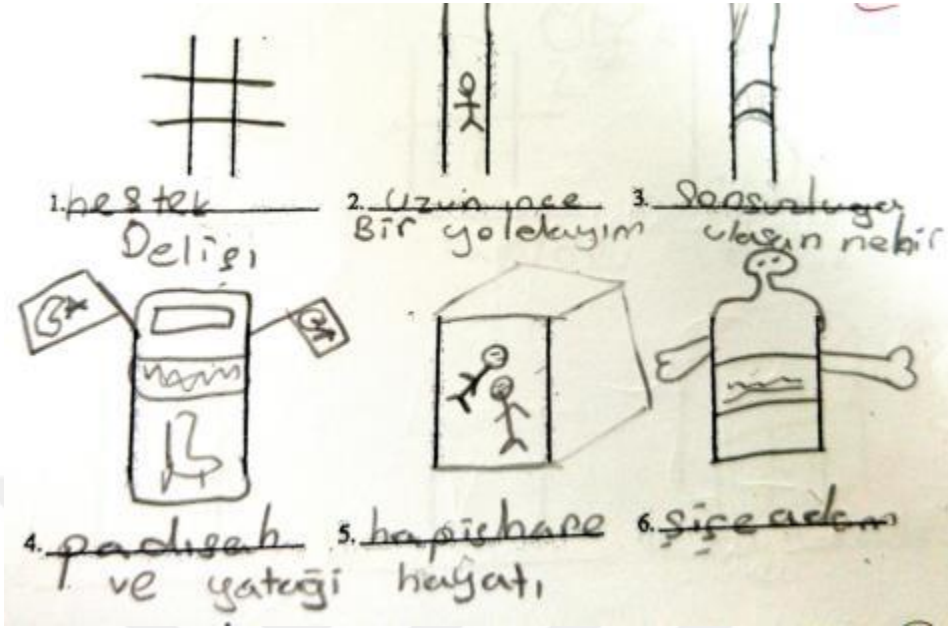 1. heştek
Delisi
2. Uzun ince
Bir yoldayım
3. Sonsuzluğa
ulaşan nehir
4. padişah
ve yatağı
5. hapishane
hayatı
6. şişe adam